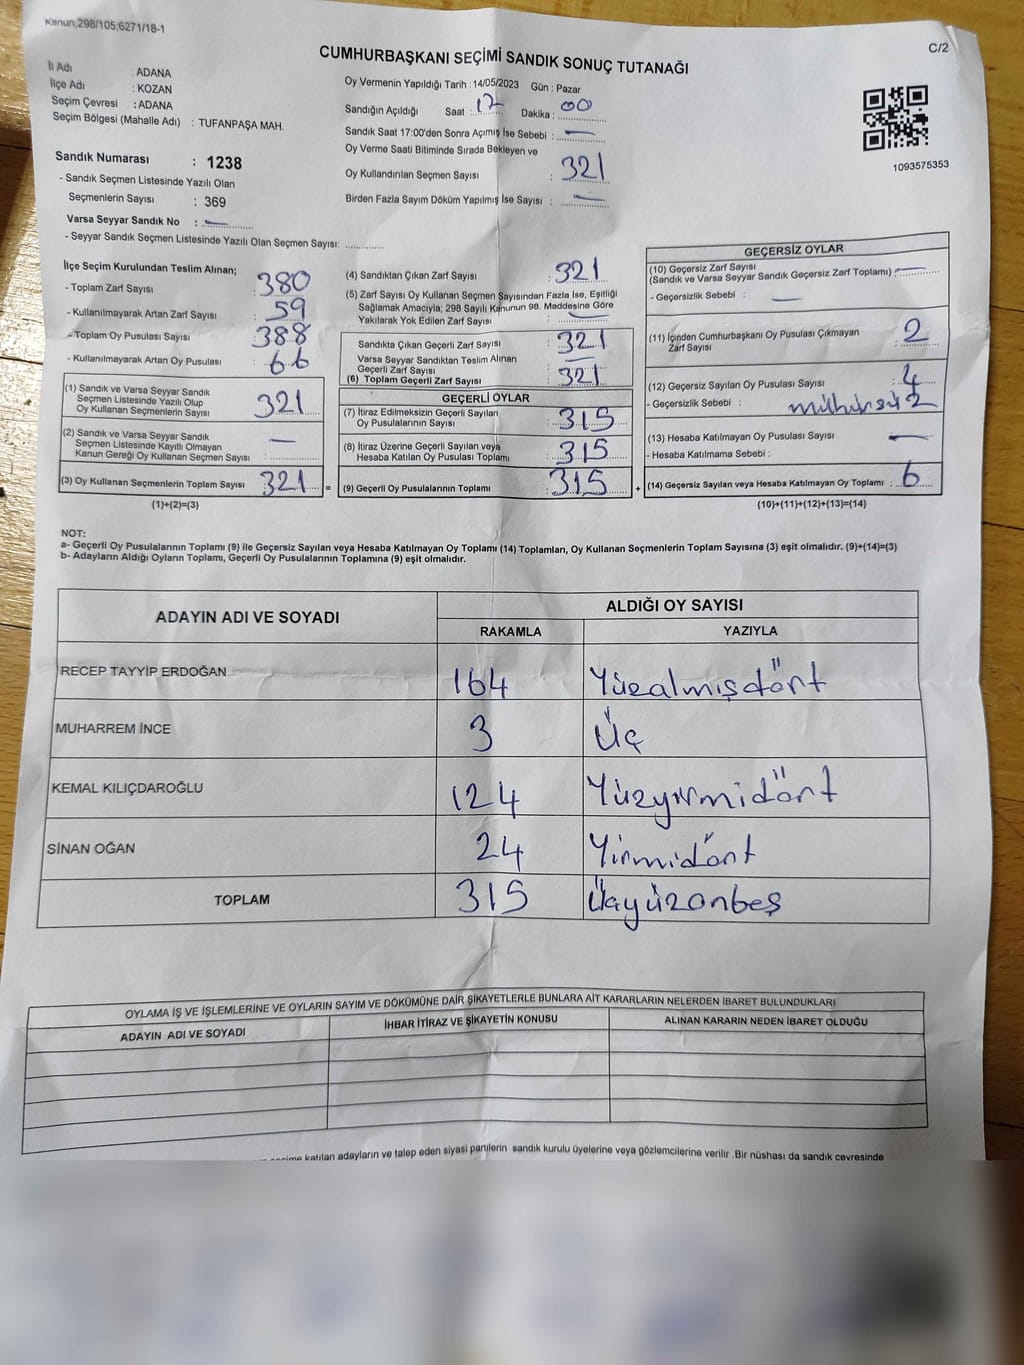 Kanun;298/105;6271/18-1
C/2
CUMHURBAŞKANI SEÇİMİ SANDIK SONUÇ TUTANAĞI
İl Adı : ADANA
İlçe Adı : KOZAN
Seçim Çevresi : ADANA
Seçim Bölgesi (Mahalle Adı) : TUFANPAŞA MAH.
Sandık Numarası : 1238
- Sandık Seçmen Listesinde Yazılı Olan
Seçmenlerin Sayısı : 369
Varsa Seyyar Sandık No : —
- Seyyar Sandık Seçmen Listesinde Yazılı Olan Seçmen Sayısı:
Oy Vermenin Yapıldığı Tarih : 14/05/2023 Gün : Pazar
Sandığın Açıldığı Saat : 17 Dakika : 00
Sandık Saat 17:00'den Sonra Açımış İse Sebebi : —
Oy Verme Saati Bitiminde Sırada Bekleyen ve
Oy Kullandırılan Seçmen Sayısı : 321
Birden Fazla Sayım Döküm Yapılmış İse Sayısı : —
1093575353
İlçe Seçim Kurulundan Teslim Alınan;
- Toplam Zarf Sayısı : 380
- Kullanılmayarak Artan Zarf Sayısı : 59
- Toplam Oy Pusulası Sayısı : 388
- Kullanılmayarak Artan Oy Pusulası : 66
(1) Sandık ve Varsa Seyyar Sandık
Seçmen Listesinde Yazılı Olup
Oy Kullanan Seçmenlerin Sayısı : 321
(2) Sandık ve Varsa Seyyar Sandık
Seçmen Listesinde Kayıtlı Olmayan
Kanun Gereği Oy Kullanan Seçmen Sayısı : —
(3) Oy Kullanan Seçmenlerin Toplam Sayısı : 321 =
(1)+(2)=(3)
(4) Sandıktan Çıkan Zarf Sayısı : 321
(5) Zarf Sayısı Oy Kullanan Seçmen Sayısından Fazla İse, Eşitliği
Sağlamak Amacıyla; 298 Sayılı Kanunun 98. Maddesine Göre
Yakılarak Yok Edilen Zarf Sayısı : —
Sandıkta Çıkan Geçerli Zarf Sayısı : 321
Varsa Seyyar Sandıktan Teslim Alınan
Geçerli Zarf Sayısı : —
(6) Toplam Geçerli Zarf Sayısı : 321
GEÇERLİ OYLAR
(7) İtiraz Edilmeksizin Geçerli Sayılan
Oy Pusulalarının Sayısı : 315
(8) İtiraz Üzerine Geçerli Sayılan veya
Hesaba Katılan Oy Pusulası Toplamı : 315
(9) Geçerli Oy Pusulalarının Toplamı : 315 +
GEÇERSİZ OYLAR
(10) Geçersiz Zarf Sayısı
(Sandık ve Varsa Seyyar Sandık Geçersiz Zarf Toplamı) : —
- Geçersizlik Sebebi : —
(11) İçinden Cumhurbaşkanı Oy Pusulası Çıkmayan
Zarf Sayısı : 2
(12) Geçersiz Sayılan Oy Pusulası Sayısı : 4
- Geçersizlik Sebebi : mühürsüz
(13) Hesaba Katılmayan Oy Pusulası Sayısı : —
- Hesaba Katılmama Sebebi :
(14) Geçersiz Sayılan veya Hesaba Katılmayan Oy Toplamı : 6
(10)+(11)+(12)+(13)=(14)
NOT:
a- Geçerli Oy Pusulalarının Toplamı (9) ile Geçersiz Sayılan veya Hesaba Katılmayan Oy Toplamı (14) Toplamları, Oy Kullanan Seçmenlerin Toplam Sayısına (3) eşit olmalıdır. (9)+(14)=(3)
b- Adayların Aldığı Oyların Toplamı, Geçerli Oy Pusulalarının Toplamına (9) eşit olmalıdır.
ADAYIN ADI VE SOYADI ALDIĞI OY SAYISI
RAKAMLA YAZIYLA
RECEP TAYYİP ERDOĞAN 164 Yüzalmışdört
MUHARREM İNCE 3 Üç
KEMAL KILIÇDAROĞLU 124 Yüzyirmidört
SİNAN OĞAN 24 Yirmidört
TOPLAM 315 Üçyüzonbeş
OYLAMA İŞ VE İŞLEMLERİNE VE OYLARIN SAYIM VE DÖKÜMÜNE DAİR ŞİKAYETLERLE BUNLARA AİT KARARLARIN NELERDEN İBARET BULUNDUKLARI
ADAYIN ADI VE SOYADI İHBAR İTİRAZ VE ŞİKAYETİN KONUSU ALINAN KARARIN NEDEN İBARET OLDUĞU
katılan adayların ve talep eden siyasi partilerin sandık kurulu üyelerine veya gözlemcilerine verilir .Bir nüshası da sandık çevresinde